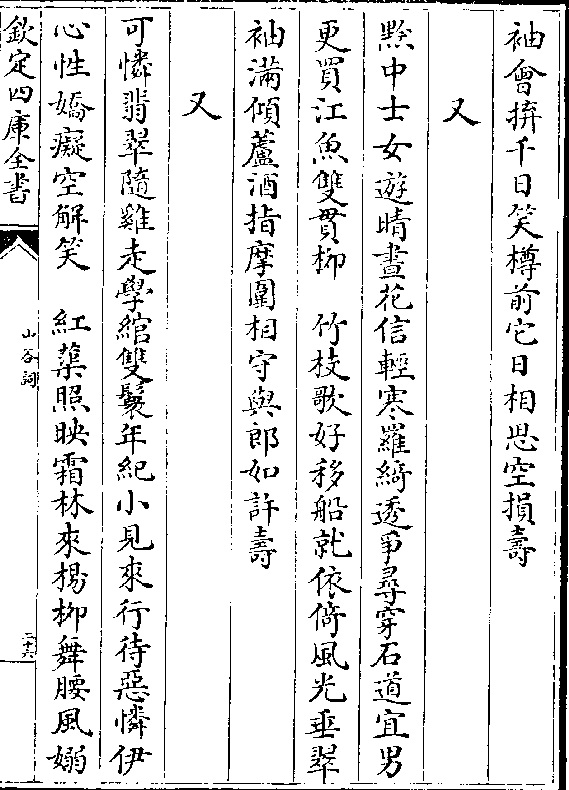 袖會拚千日笑樽前它日相思空損壽
又
黔中士女遊晴晝花信輕寒羅綺透爭尋穿石道宜男
更買江魚雙貫柳　竹枝歌好移船就依倚風光垂翠
袖滿傾蘆酒指摩圍相守與郎如許壽
又
可憐翡翠隨雞走學綰雙鬟年紀小見來行待惡憐伊
心性嬌癡空解笑　紅蕖照映霜林來楊柳舞腰風嫋
欽定四庫全書
山谷詞
二十六